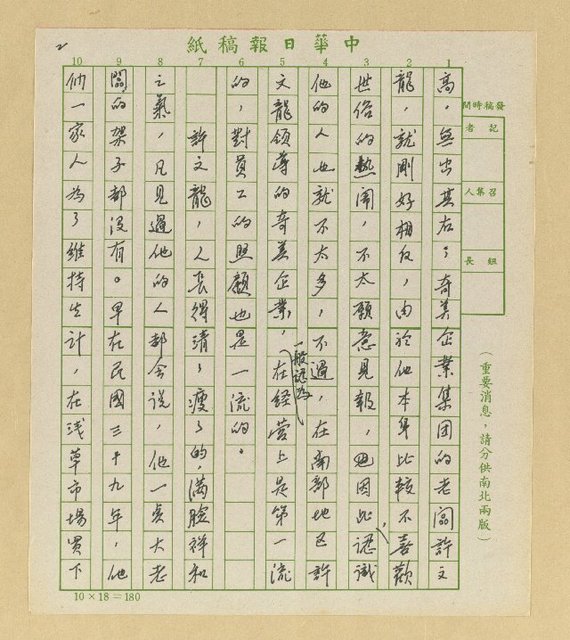 中華日報稿紙
2
1 2 3 4 5 6 7 8 9 10
高，無出其右，奇美企業集团的老闆許文
龍，就剛好相反，由於他本身比較不喜歡
世俗的熱鬧，不太願意見報，也因此，認識
他的人也就不太多，不過，在南部地区許
文龍領導的奇美企業，一般認為在経营上是第一流
的，對員工的照顧也是一流的。
許文龍，人長得清清瘦瘦的，滿脸祥和
之氣，凡見過他的人都会說，他一奌大老
闆的架子都沒有。早在民國三十九年，他
他一家人為了維持生計，在浅草市場買下
發稿時間
記者
召集人
組長
（重要消息，請分供南北兩版）
10×18=180